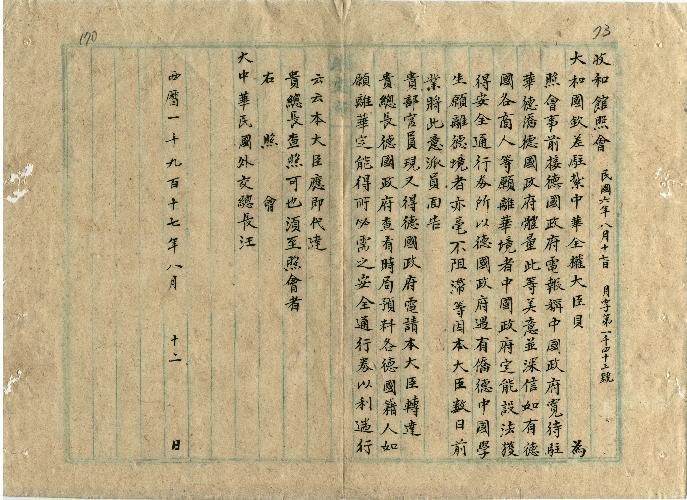 73
收和館照會 民國六年八月十七日 月字第一千四十三號
大和國欽差駐紮中華全權大臣貝 為
照會事前接德國政府電報稱中國政府寬待駐
華德僑德國政府體量此等美意並深信如有德
國各商人等願離華境者中國政府定能設法獲
得安全通行券所以德國政府遇有僑德中國學
生願離德境者亦毫不阻滯等因本大臣數日前
業將此意派員面告
貴部官員現又得德國政府電請本大臣轉達
貴總長德國政府查看時局預料各德國籍人如
願離華定能得所必需之安全通行券以利遄行
170
云云本大臣應即代達
貴總長查照可也須至照會者
右照會
大中華民國外交總長汪
西曆一千九百十七年八月 十二 日